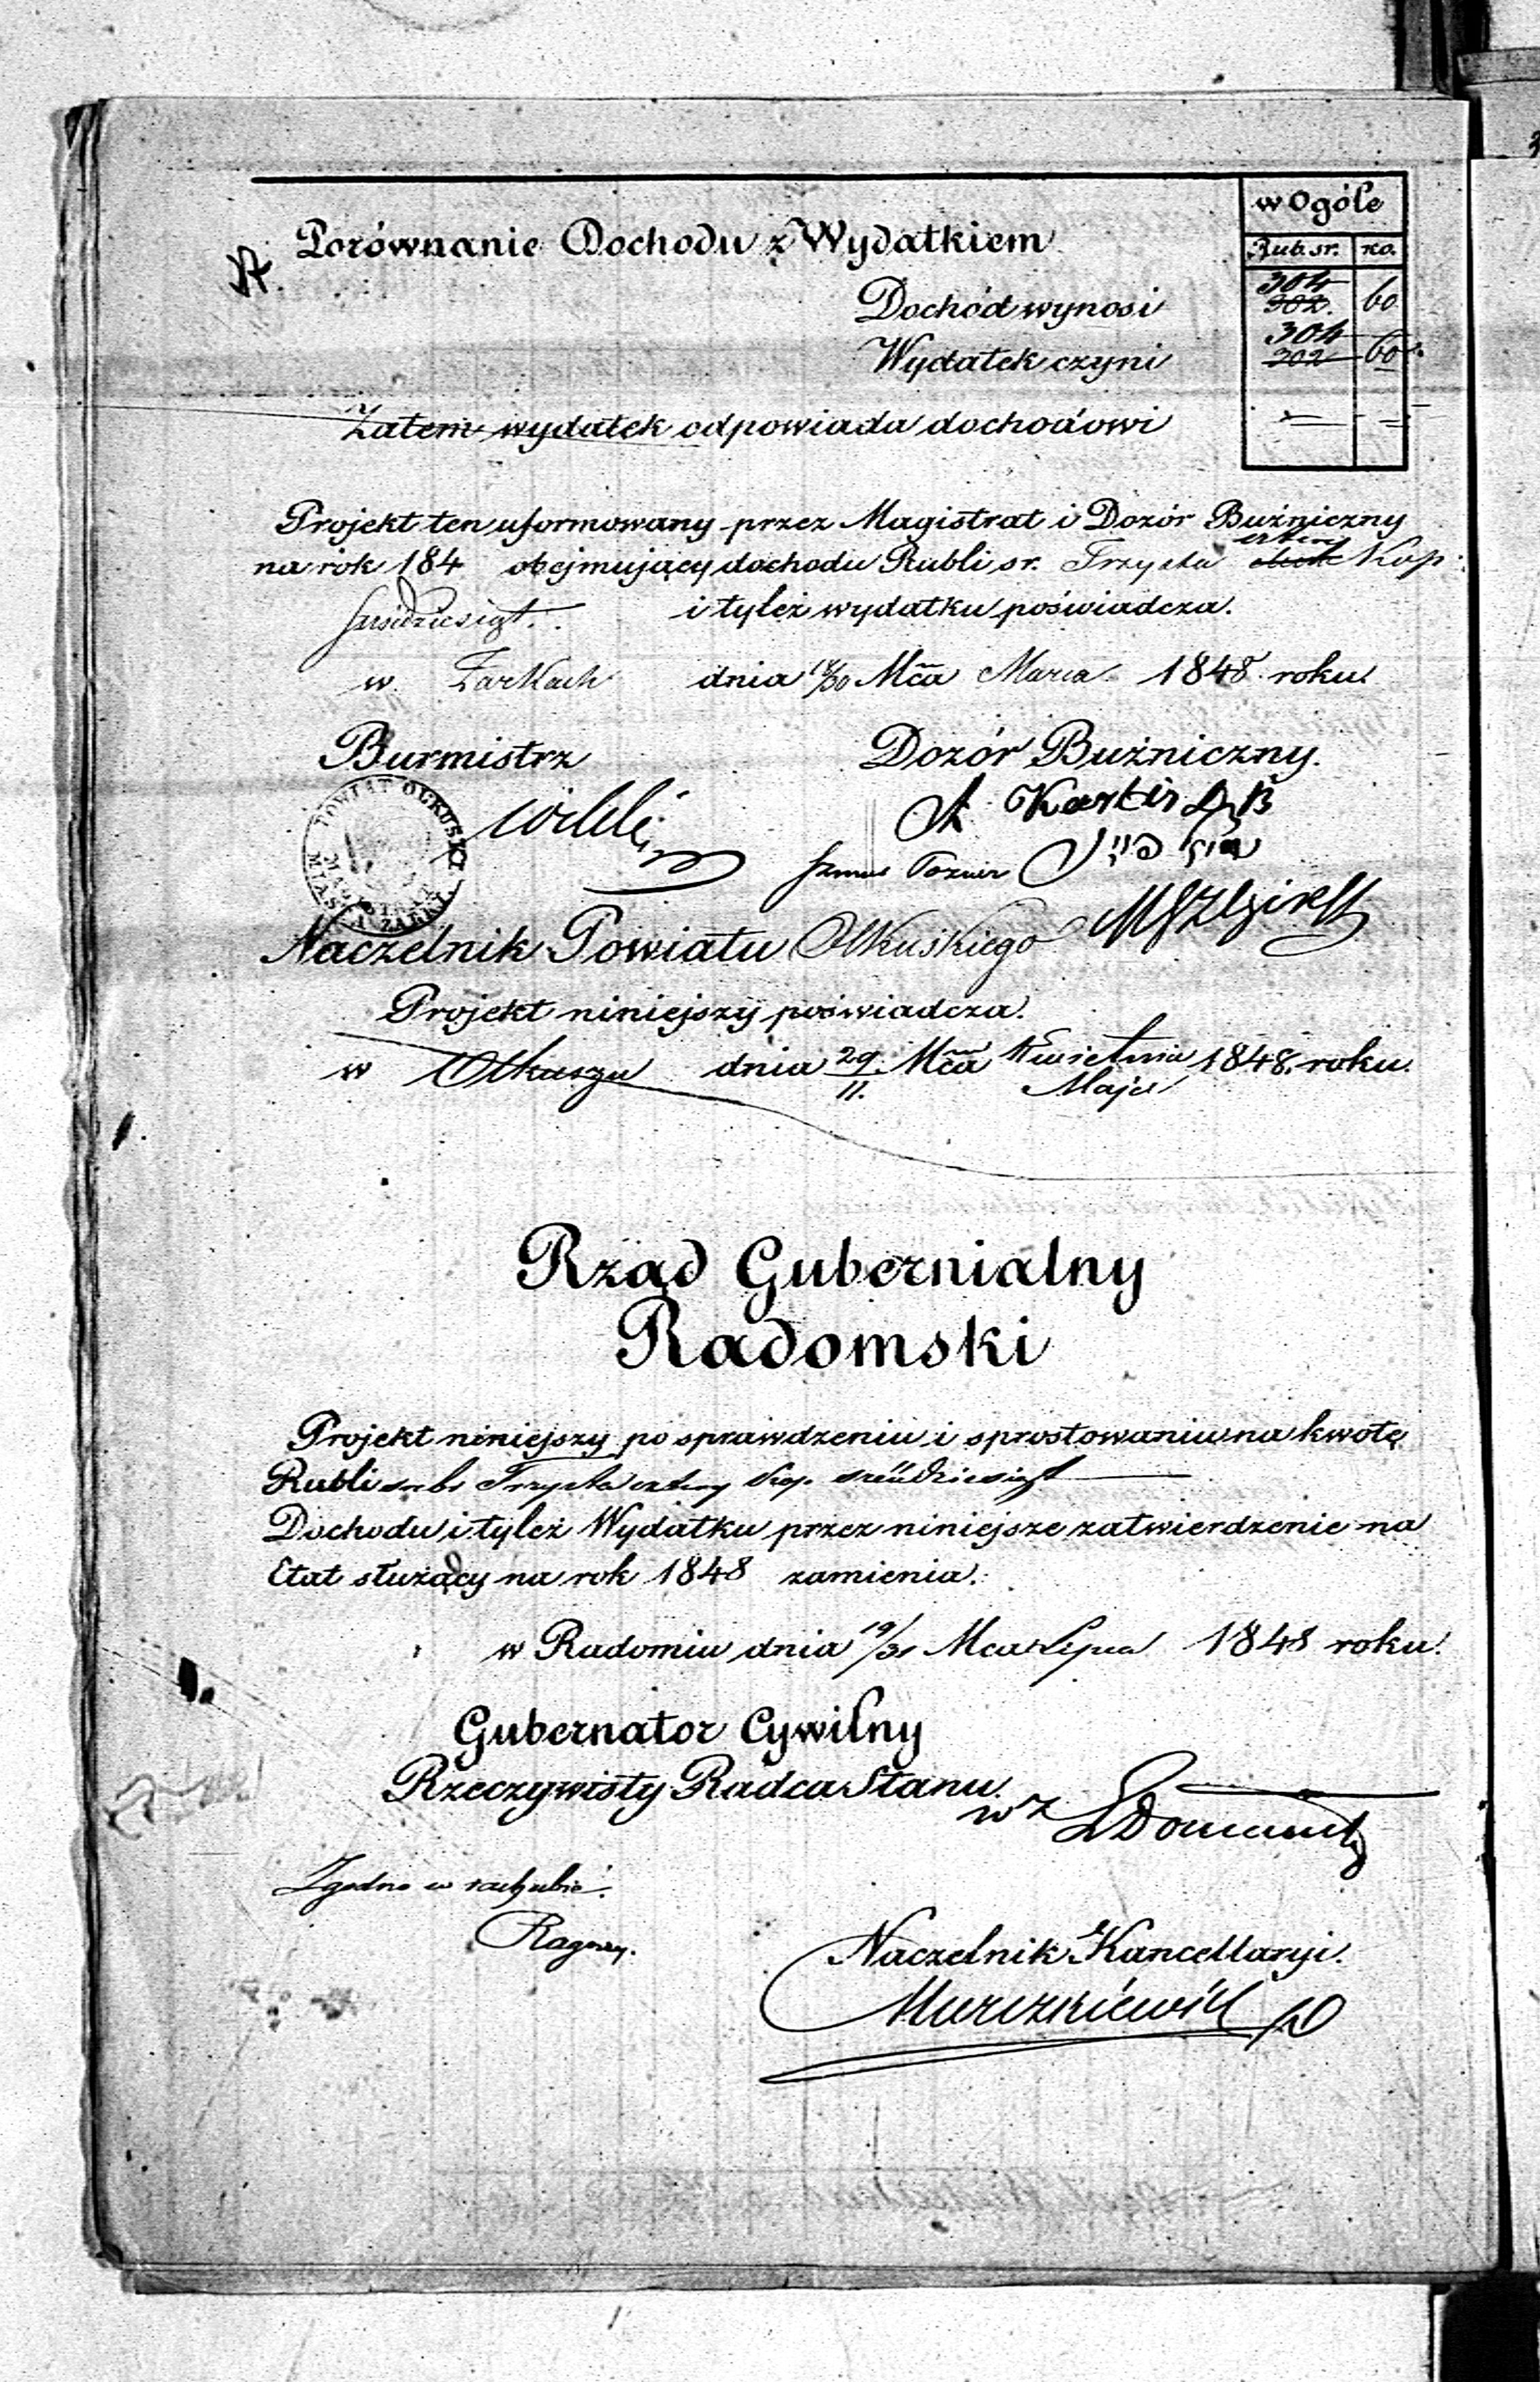 w Ogóle
Porównanie Dochodu z Wydatkiem
Rub. sr. ko.
Dochód wynosi 304 302. 60
Wydatek czyni 304 302 60
Zatem wydatek odpowiada dochodowi
Projekt ten uformowany przez Magistrat i Dozór Bużniczny
na rok 184 obejmujący dochodu Rubli sr. Trzysta cztery Kop:
sześćdziesiąt. i tyleż wydatku poświadcza.
w Żarkach dnia 18/30 Mča Marca 1848 roku.
Burmistrz Dozór Bużniczny.
POWIAT OLKUSKI
MIASTA ŻARKI
Naczelnik Powiatu Olkuskiego
Projekt niniejszy poświadcza.
w Olkuszu dnia 29/11. Mča Kwietnia/Maja 1848 roku.
Rząd Gubernialny
Radomski
Projekt niniejszy po sprawdzeniu i sprostowaniu na kwotę
Rubli srbr Trzysta cztery Kop. sześćdziesiąt
Dochodu i tyleż Wydatku przez niniejsze zatwierdzenie na
Etat służący na rok 1848 zamienia.
w Radomiu dnia 19/31 Mca Lipca 1848 roku.
Gubernator Cywilny
Rzeczywisty Radca Stanu
wz
Zgodno w rachubie.
Naczelnik Kancellaryi.